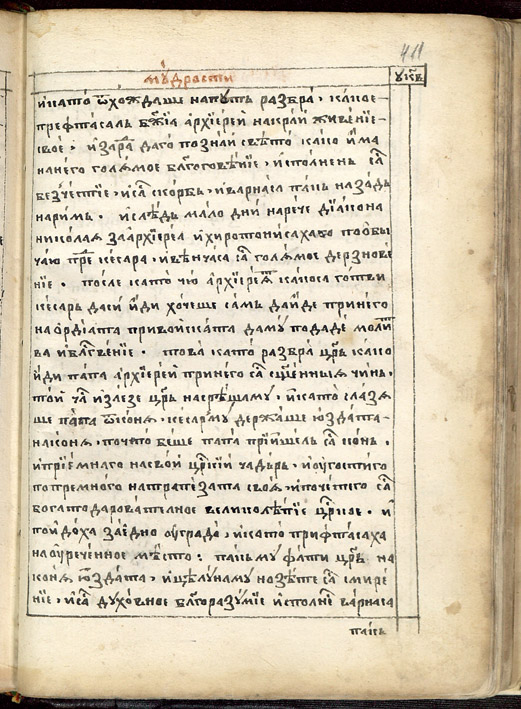 411
мꙋдрости
ꙋкв
икато ѿхождаше напꙋть разбра, какое
престасаль бж҃їа архїерей накрай живенїе
свое, и зара҃ даго познай свѣто како има
нанего голѧмое блг҃оговѣнїе, исполнень са҃
безчестїе, иса҃ скорбь, иварнаса пакь назадь
наримь. ислѣдь мало дни нарече дїакона
николаѧ заархїереѧ ихиротонисахаго пообы
чаю пре҃ кесара, ивѣнчаса са҃ голѧмое дерзнове
нїе. после като чю архїереѧ какоса готви
кесарь даси йди хочеше самь дайде принего
на ордїата привойската дамꙋ подаде моли҃т
ва иблг҃свенїе. това като разбра цр҃ь како
йди папа архїерей принего са҃ сщ҃енныѧ чинь,
той ча҃ излезе цр҃ь насрѣщамꙋ, икато слазѧ
ше папата ѿконѧ, кесарꙋмꙋ держаше юздата
наконѧ, почето беше папа прїишель са҃ конь,
ипрїемнаго насвой цр҃скїй чадырь, иоугостиго
потремного натрапезата своѧ, ипочетиго са҃
богатодароват елное великолѣпїе цр҃кое. и
пойдоха заедно оуградо, икато пристасаха
наоуреченное мѣсто: пакьмꙋ фати цр҃ь на
конѧ юздата, ицѣлꙋнамꙋ нозѣте са҃ смире
нїе, иса҃ дꙋховное блг҃оразꙋмїе исполне҃ варнаса
пакь